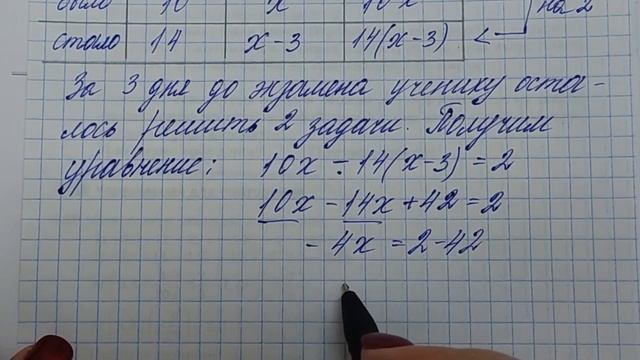 было 10 x 10x
на 2
стало 14 x-3 14(x-3)
За 3 дня до экзамена ученику оста-
лось решить 2 задачи. Получим
уравнение: 10x - 14(x-3) = 2
10x - 14x + 42 = 2
- 4x = 2-42